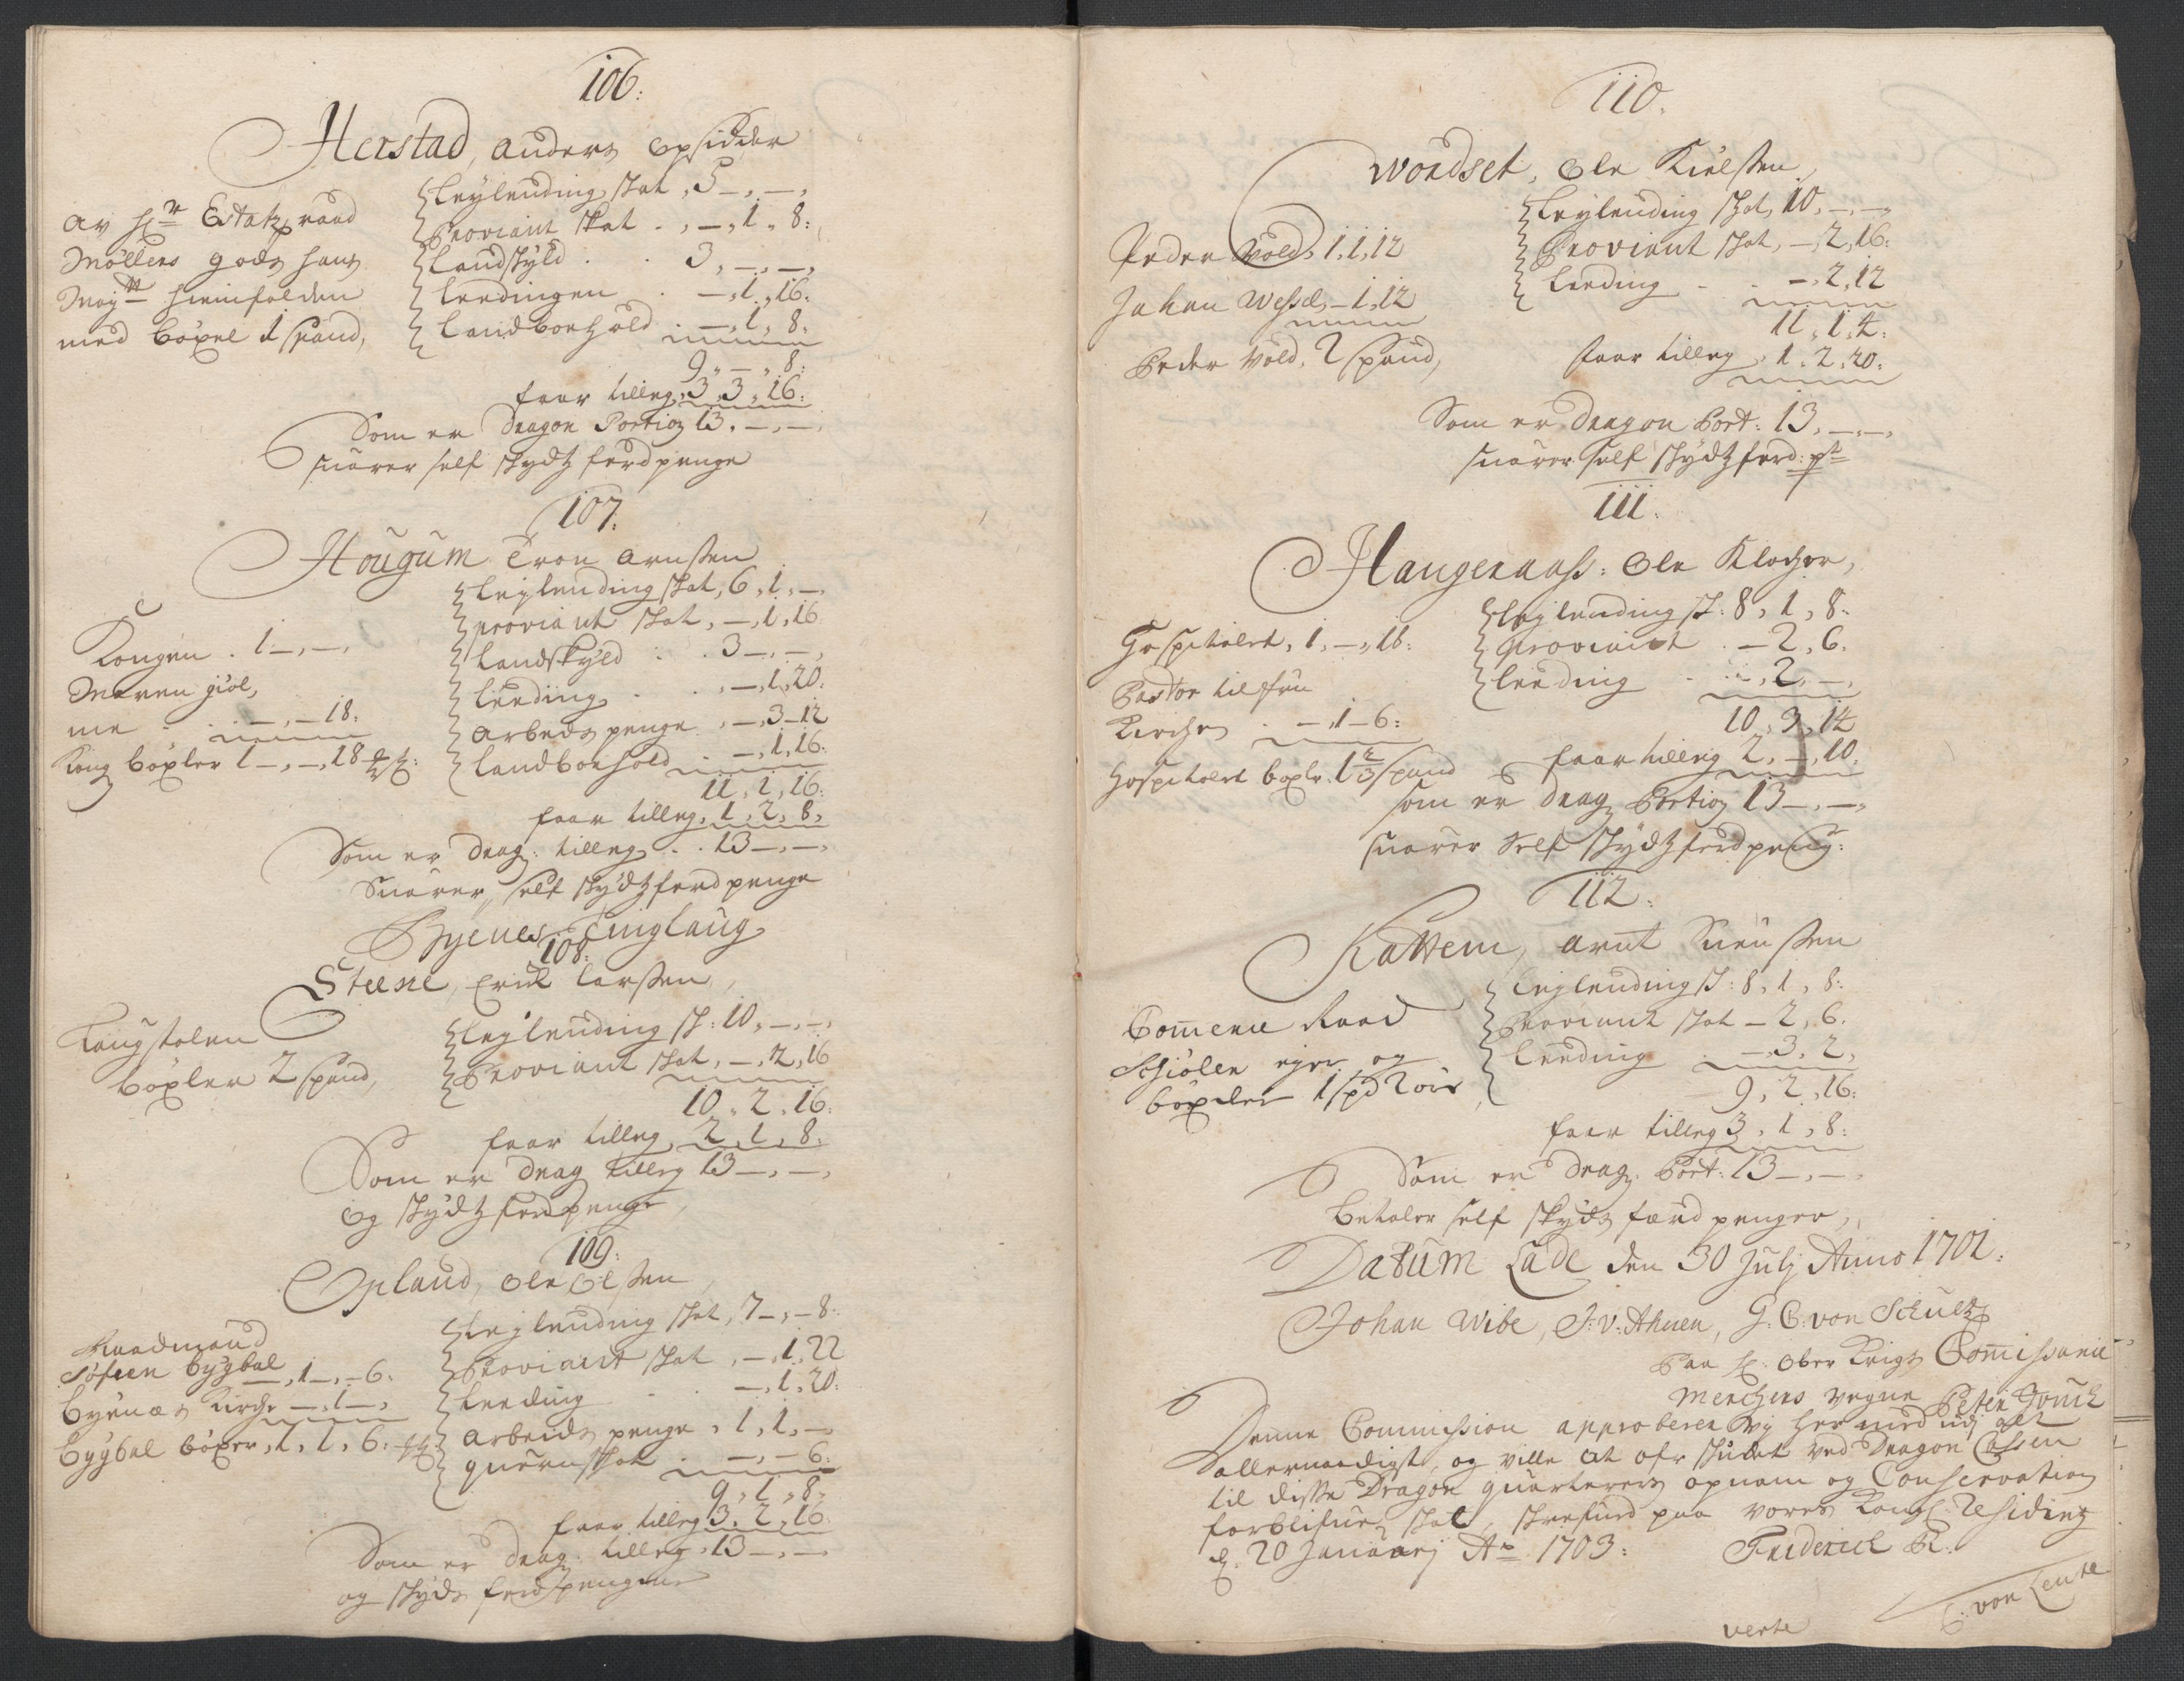 106:
Herstad, Anders Opsidder
Av Hr Estatzraad
Møllers gods hans
Maytt hiemfalden
med böxel 1 spand,
Leÿlending skat, 5 –, –,
Proviant skat . , –, 1, 8:
Landskÿld . . 3, –, –,
Leedingen . –, 1, 16:
Landboehold . –, 1, 8:
9, –, 8:
faar tilleg, 3, 3, 16:
Som er Dragon Portion 13, –, –,
suarer self skydtz ferd penge
107:
Hougum Tron Arnssen
Kongen . 1 –, –,
Maren giöl,
me . . –, – 18:
Kong böxler 1 –, –, 18
Leÿlending skat, 6, 1, –,
proviant skat, –, 1, 16
Landskÿld . . 3 –, –,
Leeding . . , –, 1, 20:
Arbeds penge , –, 3 – 12
Landboehold . –, 1, 16:
11, 1, 16:
faar tilleg, 1, 2, 8,
Som er Drag: tilleg . . 13 –, –,
Suarer, self skÿdtz ferd penge
Byenes Tinglaug
108:
Steene, Erick Larssen,
Laugstolen
böxler 2 spand,
Leÿlending sk: 10, –, –,
Proviant skat, –, 2, 16
10, 2, 16:
faar tilleg, 2, 1, 8:
Som er Drag tilleg 13 –, –,
Og skÿdtz ferd penge,
109:
Opland, Ole Olssen
Raadmand
Søfren Bÿgbal –, 1 –, – 6:
Byenæs Kirche –, 1 –,
Bÿgbal böxer, 1, 1, 6:
Leÿlending skat, 7 –, – 8:
Proviant skat, –, 1, 22
Leeding . . –, 1, 20:
Arbeids penge, 1, 1, –
quernskat . –, – 6:
9, 1, 8:
faar tilleg 3, 2, 16
Som er Drag: tilleg, 13 –, –
og skÿds ferdspengene
110.
Wordset, Ole Kielssen,
Peder Wold, 1, 1, 12
Johan Wessel, – 1, 12
Peder Wold, 2 spand,
Leÿlending skat, 10, –, –,
Proviant skat, –, 2, 16:
Leeding . . –, 2, 12
11, 1, 4:
faar tilleg, 1, 2, 20:
Som er Dragon Port: 13, –, –,
suarer self skÿdtz ferd: p
111.
Hangeraass: Ole Klocher,
Hospitalet, 1, –, 18:
Pastor til
Kirche . –, 1 – 6:
Hospitalet böxlr: 1 2/3 spand
Leÿlending sk: 8, 1, 8:
Proviant . – 2, 6.
Leeding . . –, 2, –,
10, 3, 14
faar tilleg 2, –, 10:
som er Drag Portion 13 –, –,
suarer self skÿdtz ferd peng:
112:
Kattem, Arnt Suenssen
Comerce Raad
Schiølen ejer og
böxler 1 spd 2 ör
Leÿlending sk: 8, 1, 8:
Proviant skat – 2, 6.
Leeding . –, 3, 2,
9, 2, 16:
faar tilleg 3, 1, 8:
Som er Drag: Port: 13 –, –,
Betaler self skÿds færd penger,
Datum Lade den 30 Julj Anno 1701:
Johan Wibe, J: v: Ahnen, G: C: von Schultz
Paa H: Ober Krigs Commissarie
Merchers vegne Peter Jouch
Denne Commission approberer vÿ her med udj alt
allernaadigst, og ville at ofr skudet ved Dragon Cassen
til disse Dragon quarterers opnam og Conservation
forblifue skal, skrefued paa vores Kongl: Residentz
d. 20 Januarj Ao 1703: Friderich R.
C: von Lente
verte